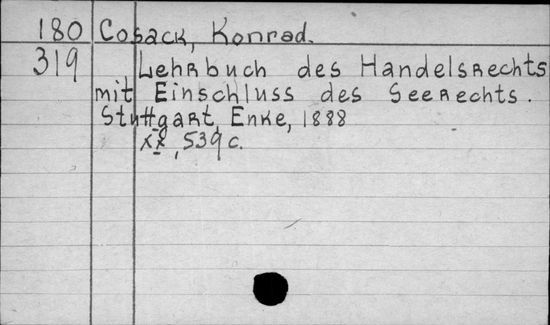 180 Cosack, Konrad.
319 Lehrbuch des Handelsrechts
mit Einschluss des Seerechts.
Stuttgart, Enke, 1888
XX, 539 c.